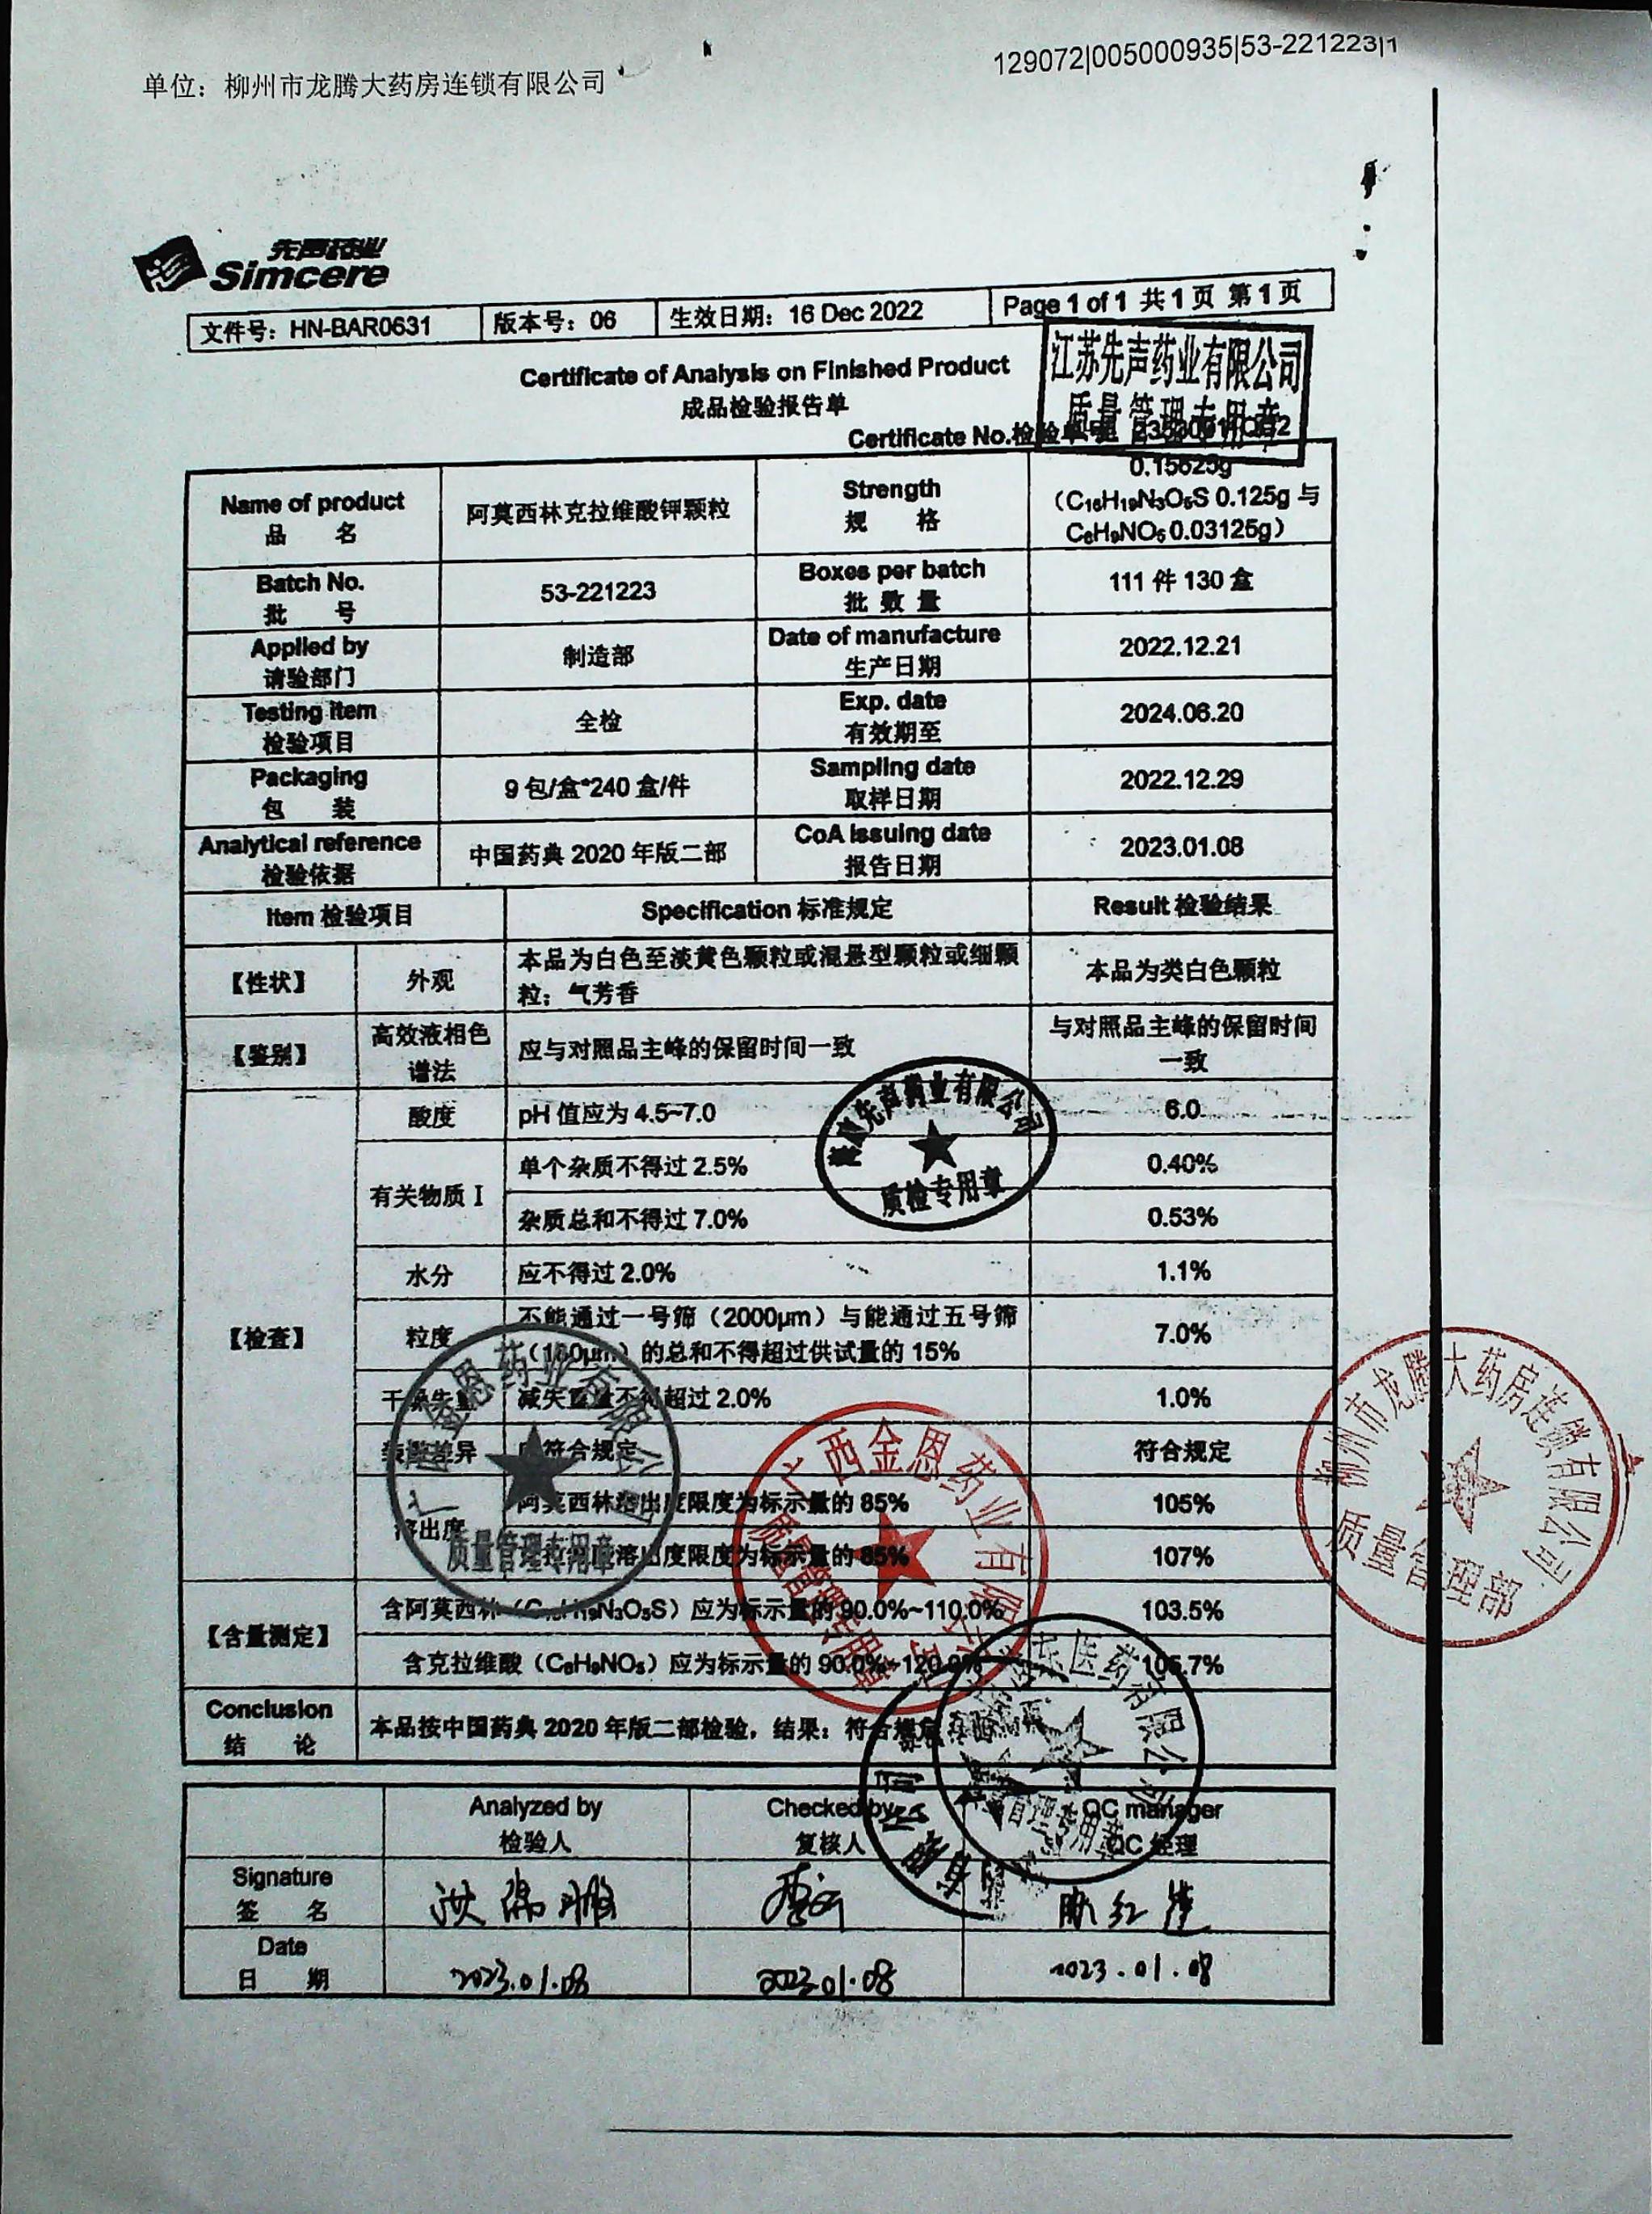 129072|005000935|53-221223|1
单位：柳州市龙腾大药房连锁有限公司
先声药业
Simcere
文件号：HN-BAR0631 版本号：06 生效日期：16 Dec 2022 Page 1 of 1 共1页 第1页
江苏先声药业有限公司
质量管理专用章
Certificate of Analysis on Finished Product
成品检验报告单
Certificate No.检验单号
Name of product 品 名 阿莫西林克拉维酸钾颗粒 Strength 规 格 0.15625g
（C₁₆H₁₉N₃O₅S 0.125g 与
C₈H₉NO₅ 0.03125g）
Batch No. 批 号 53-221223 Boxes per batch 批 数 量 111 件 130 盒
Applied by 请验部门 制造部 Date of manufacture 生产日期 2022.12.21
Testing item 检验项目 全检 Exp. date 有效期至 2024.06.20
Packaging 包 装 9 包/盒*240 盒/件 Sampling date 取样日期 2022.12.29
Analytical reference 检验依据 中国药典 2020 年版二部 CoA issuing date 报告日期 2023.01.08
Item 检验项目 Specification 标准规定 Result 检验结果
【性状】 外观 本品为白色至淡黄色颗粒或混悬型颗粒或细颗
粒；气芳香 本品为类白色颗粒
【鉴别】 高效液相色
谱法 应与对照品主峰的保留时间一致 与对照品主峰的保留时间
一致
【检查】 酸度 pH 值应为 4.5~7.0 6.0
有关物质 I 单个杂质不得过 2.5% 0.40%
杂质总和不得过 7.0% 0.53%
水分 应不得过 2.0% 1.1%
粒度 不能通过一号筛（2000μm）与能通过五号筛
（180μm）的总和不得超过供试量的 15% 7.0%
干燥失重 减失重量不得超过 2.0% 1.0%
装量差异 应符合规定 符合规定
溶出度 阿莫西林溶出度限度为标示量的 85% 105%
溶出度限度为标示量的 85% 107%
【含量测定】 含阿莫西林（C₁₆H₁₉N₃O₅S）应为标示量的 90.0%~110.0% 103.5%
含克拉维酸（C₈H₉NO₅）应为标示量的 90.0%~120.0% 105.7%
Conclusion 结 论 本品按中国药典 2020 年版二部检验，结果：符合规定
Analyzed by 检验人 Checked by 复核人 QC manager QC 经理
Signature 签 名
Date 日 期 2023.01.08 2023.01.08 2023.01.08
海南先声药业有限公司
质检专用章
广西金恩药业有限公司
质量管理专用章
广西金恩药业有限公司
质量管理专用章
柳州市龙腾大药房连锁有限公司
质量管理部
医药有限公司